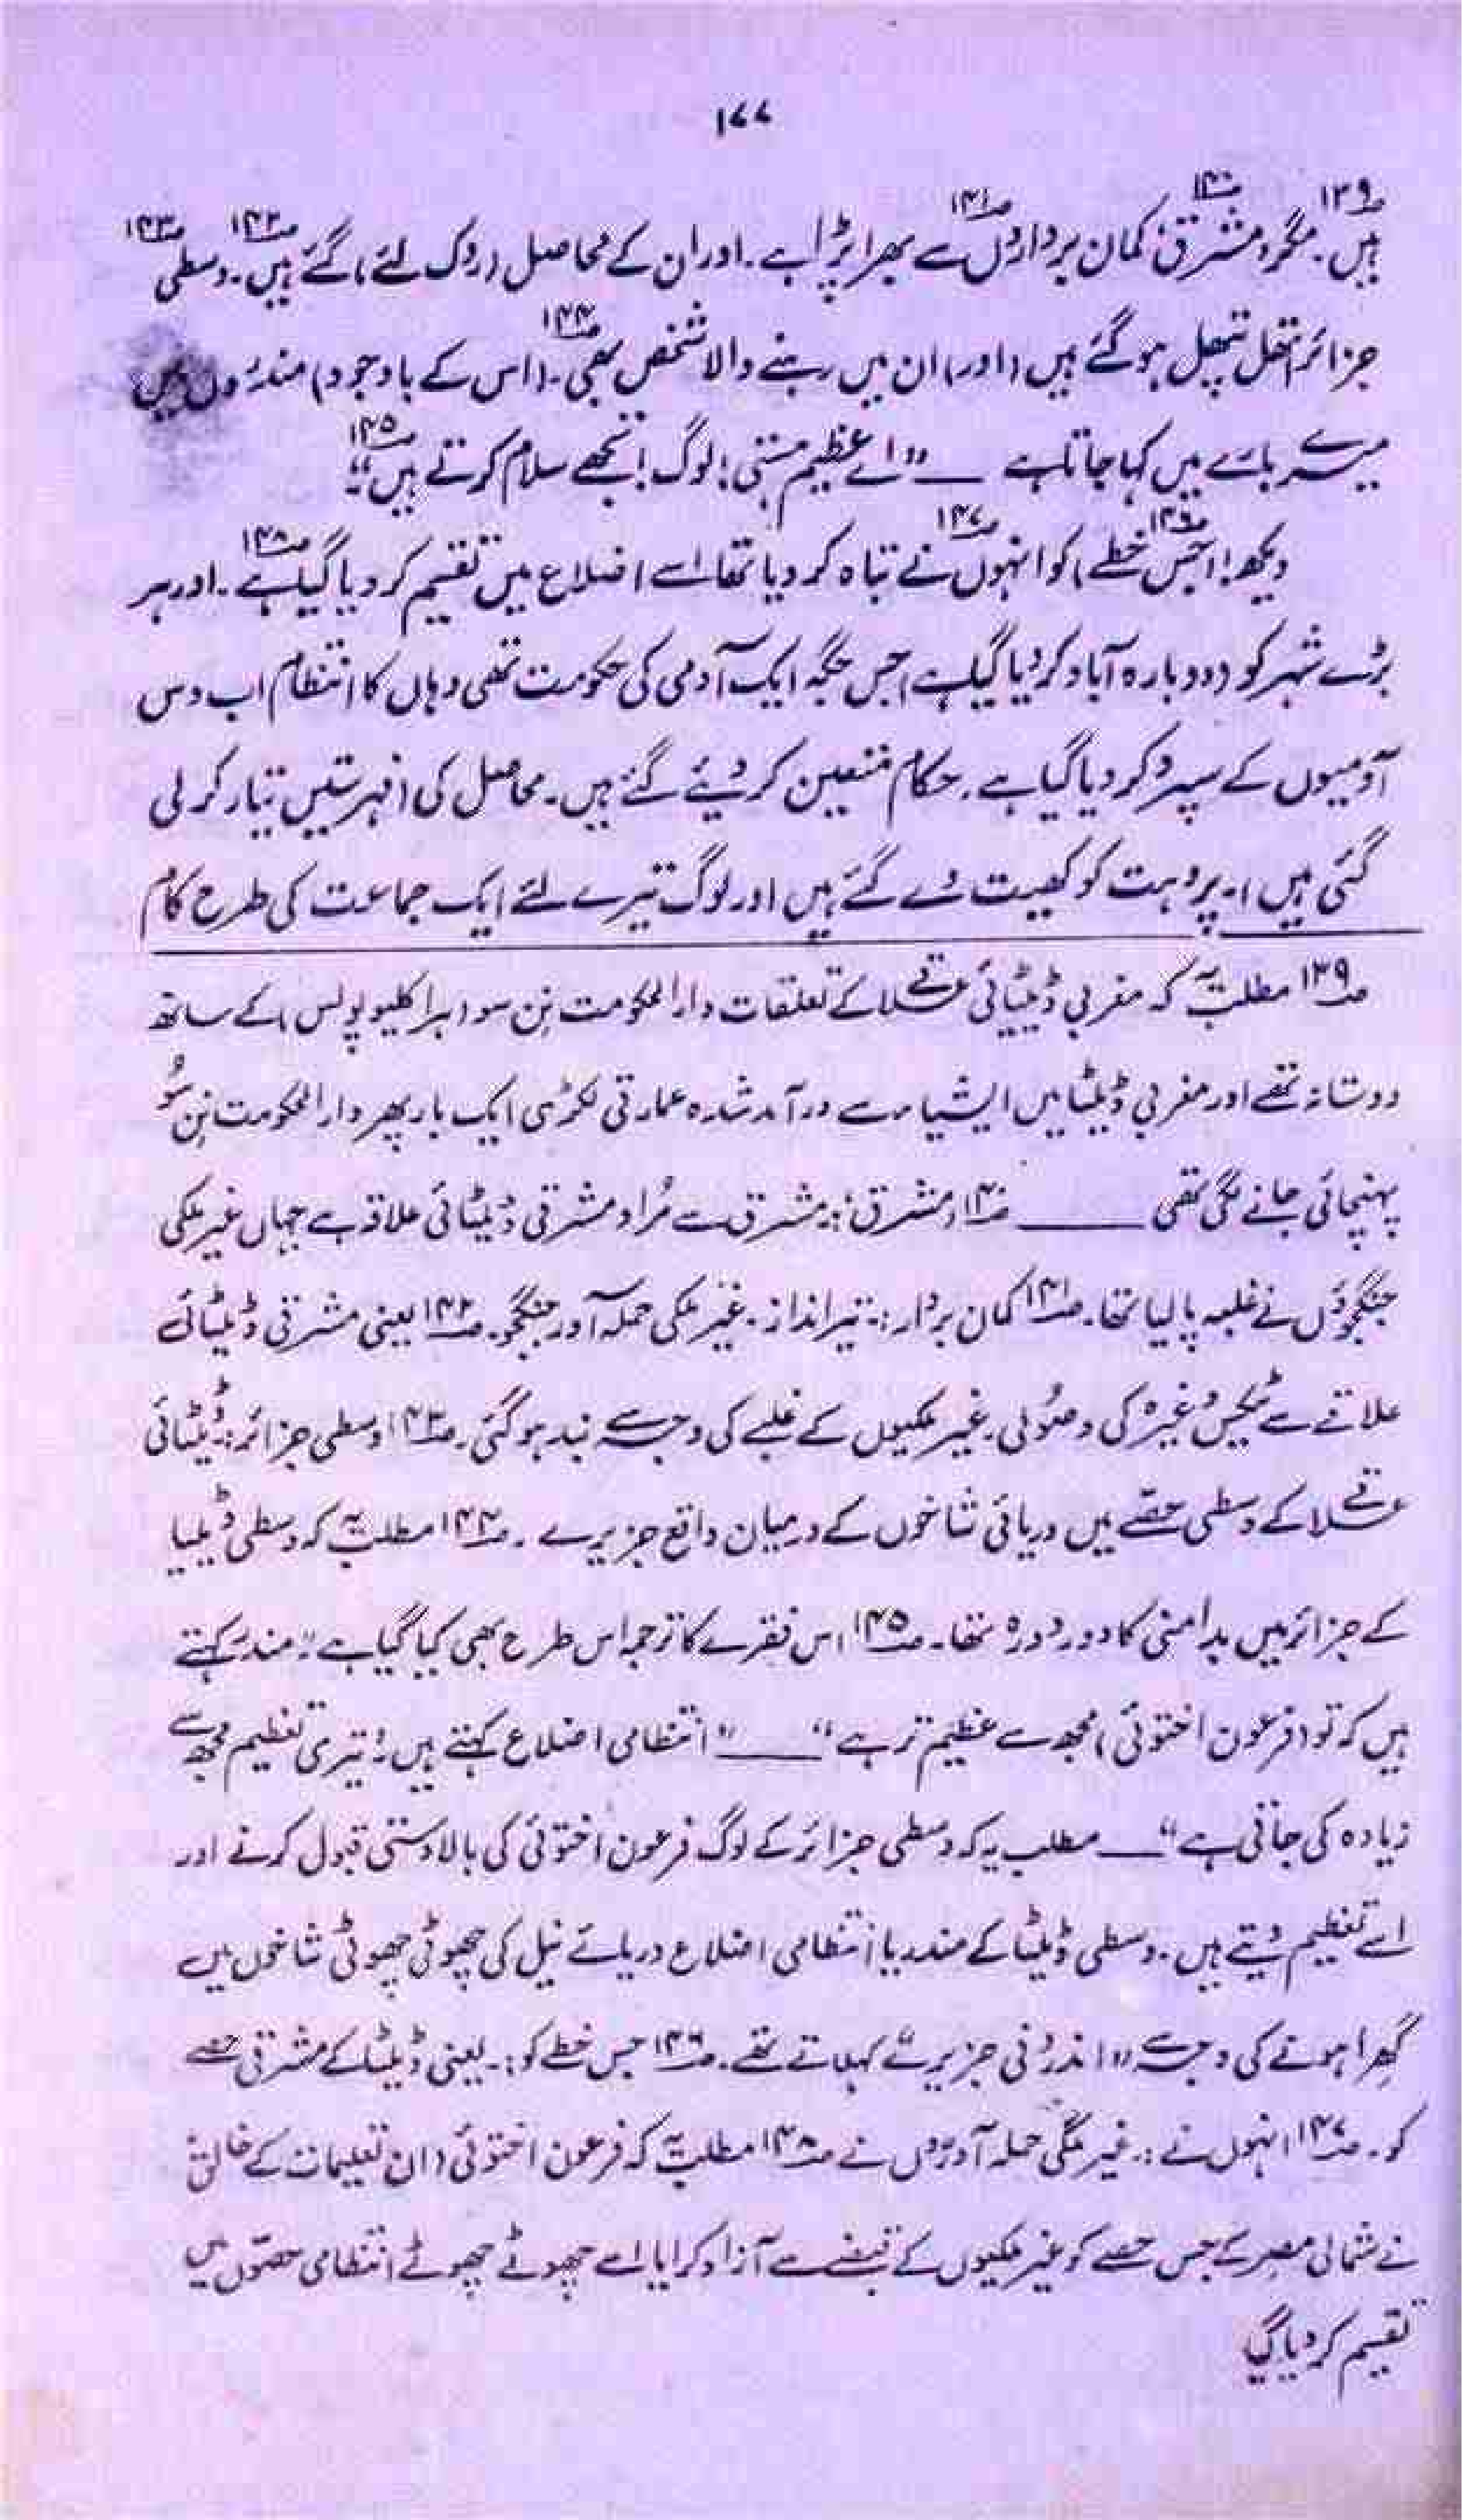 ۱۷۷
ہیں۔ ۱۳۹ مگر ’مشرق‘ ۱۴۰ کمان برداروں ۱۴۱ سے بھرا پڑا ہے۔ اور ان کے محاصل (روک لئے) گئے ہیں۔ ۱۴۲ وسطی ۱۴۳
جزائر اتھل پتھل ہو گئے ہیں (اور) ان میں رہنے والا شخص بھی۔ ۱۴۴ (اس کے باوجود) مندروں میں
میرے بارے میں کہا جاتا ہے ــــ ”اے عظیم ہستی! لوگ! تجھے سلام کرتے ہیں“۔ ۱۴۵
دیکھ! (جس خطے) ۱۴۶ کو انہوں ۱۴۷ نے تباہ کر دیا تھا اسے اضلاع میں تقسیم کر دیا گیا ہے ۱۴۸۔ اور ہر
بڑے شہر کو (دوبارہ آباد کر دیا گیا ہے) جس جگہ ایک آدمی کی حکومت تھی وہاں کا انتظام اب دس
آدمیوں کے سپرد کر دیا گیا ہے۔ حکام متعین کر دیئے گئے ہیں۔ محاصل کی (فہرستیں تیار کر لی
گئی ہیں)۔ پروہت کو کھیت دے گئے ہیں اور لوگ تیرے لئے ایک جماعت کی طرح کام
۱۳۹ مطلب یہ کہ مغربی ڈیلٹائی علاقے کے تعلقات دارالحکومت نِن سو (ہراکلیوپولس) کے ساتھ
دوستانہ تھے اور مغربی ڈیلٹا میں ایشیا سے درآمد شدہ عمارتی لکڑی ایک بار پھر دارالحکومت نِن سُو
پہنچائی جانے لگی تھی ــــــ ۱۴۰ مشرق:۔ مشرق سے مُراد مشرقی ڈیلٹائی علاقہ ہے جہاں غیر ملکی
جنگجوؤں نے غلبہ پا لیا تھا۔ ۱۴۱ کمان بردار:۔ تیر انداز۔ غیر ملکی حملہ آور جنگجو۔ ۱۴۲ یعنی مشرقی ڈیلٹائی
علاقے سے ٹیکس وغیرہ کی وصولی۔ غیر ملکیوں کے غلبے کی وجہ سے بند ہو گئی۔ ۱۴۳ وسطی جزائر:۔ ڈیلٹائی
علاقے کے وسطی حصّے میں دریائی شاخوں کے درمیان واقع جزیرے۔ ۱۴۴ مطلب یہ کہ وسطی ڈیلٹا
کے جزائر میں بدامنی کا دور دورہ تھا۔ ۱۴۵ اس فقرے کا ترجمہ اس طرح بھی کیا گیا ہے۔ ”مندر کہتے
ہیں کہ تو (فرعون اختوئی) مجھ سے عظیم تر ہے“ ــــــ ”انتظامی اضلاع کہتے ہیں: تیری تعظیم مجھ سے
زیادہ کی جاتی ہے“ ــــ مطلب یہ کہ وسطی جزائر کے لوگ فرعون اختوئی کی بالادستی قبول کرنے اور
اسے تعظیم دیتے ہیں۔ وسطی ڈیلٹا کے مندر یا انتظامی اضلاع دریائے نیل کی چھوٹی چھوٹی شاخوں میں
گھرا ہونے کی وجہ سے ”اندرُونی جزیرے“ کہلاتے تھے۔ ۱۴۶ جس خطے کو:۔ یعنی ڈیلٹا کے مشرقی حصے
کو۔ ۱۴۷ انہوں نے:۔ غیر ملکی حملہ آوروں نے ۱۴۸ مطلب یہ کہ فرعون اختوئی (ان تعلیمات کے خالق)
نے شمالی مصر کے جس حصے کو غیر ملکیوں کے قبضے سے آزاد کرایا اسے چھوٹے چھوٹے انتظامی حصّوں میں
تقسیم کر دیا گیا